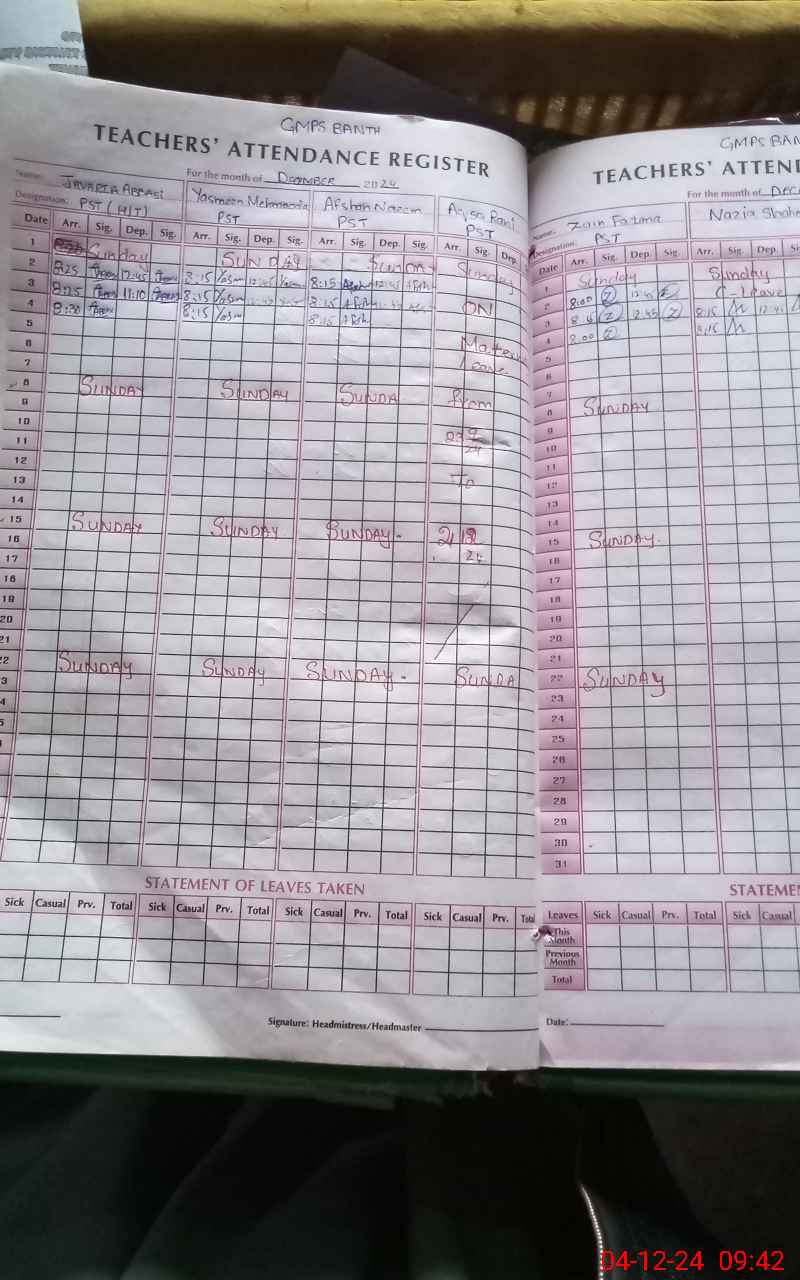 GMPS BANTH
TEACHERS' ATTENDANCE REGISTER
For the month of DECEMBER 2024
Name: JAVARIA ABBASI Yasmeen Mehmooda Afshan Nazem Aysa Rani
Designation: PST (H/T) PST PST PST
Date Arr. Sig. Dep. Sig. Arr. Sig. Dep. Sig. Arr. Sig. Dep. Sig. Arr. Sig. Dep.
1 Sunday SUNDAY SUNDAY Sunday
2 8:25 12:45 8:15 Yasm 12:45 8:15 12:45
3 8:25 11:10 8:15 Yasm 8:15 Afsh ON
4 8:30 8:15 Yasm 8:15 Afsh
5
6
7
8 SUNDAY SUNDAY SUNDA from
9
10
11 24
12
13 To
14
15 SUNDAY SUNDAY SUNDAY.
16
17 24
18
19
20
21
22 SUNDAY SUNDAY SUNDAY. SUNDA
3
4
5
STATEMENT OF LEAVES TAKEN
Sick Casual Prv. Total Sick Casual Prv. Total Sick Casual Prv. Total Sick Casual Prv. Total
Signature: Headmistress/Headmaster
GMPS BAN
TEACHERS' ATTEN
For the month of DEC
Name. Zain Fatima Nazia Shahe
Designation: PST
Date Arr. Sig. Dep. Sig. Arr. Sig. Dep. S
1 Sunday Sunday
2 8:00 12:45 C-Leave
3 12:45 8:15 12:45
4 8:00 8:15
5
6
7
8 SUNDAY
9
10
11
12
13
14
15 SUNDAY.
16
17
18
19
20
21
22 SUNDAY
23
24
25
26
27
28
29
30
31
STATEMEN
Leaves Sick Casual Prv. Total Sick Casual
This Month
Previous Month
Total
Date:
04-12-24 09:42